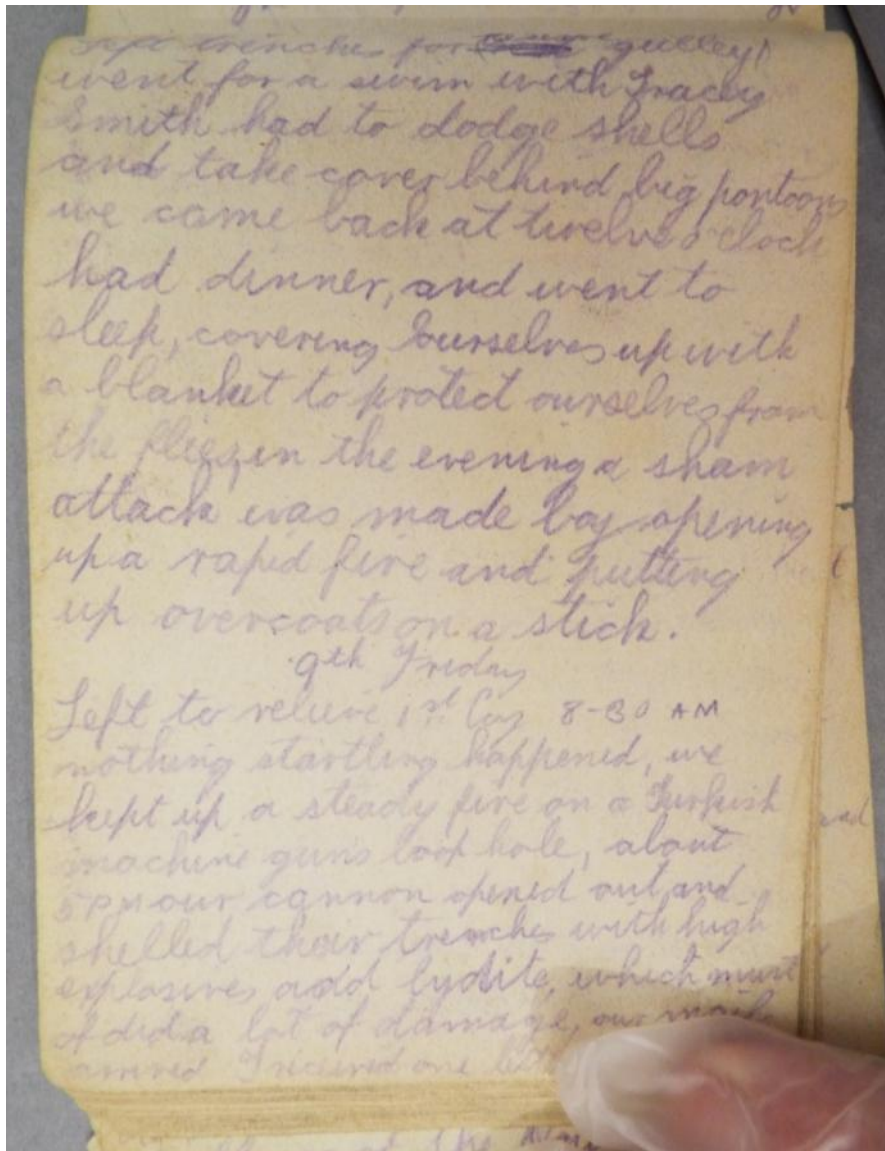 left trenches for gulley
went for a swim with Tracey
Smith had to dodge shells
and take cover behind big pontoons
we came back at twelve o clock
had dinner, and went to
sleep, covering ourselves up with
a blanket to protect ourselves from
the flies, in the evening a sham
attack was made by opening
up a rapid fire and putting
up overcoats on a stick.
9th Friday
Left to relieve 1st Coy 8-30 AM
nothing startling happened, we
kept up a steady fire on a Turkish
machine guns loop hole, about
5 PM our cannon opened out and
shelled their trenches with high
explosives and lydite, which must
of did a lot of damage, our
arrived I recieved one